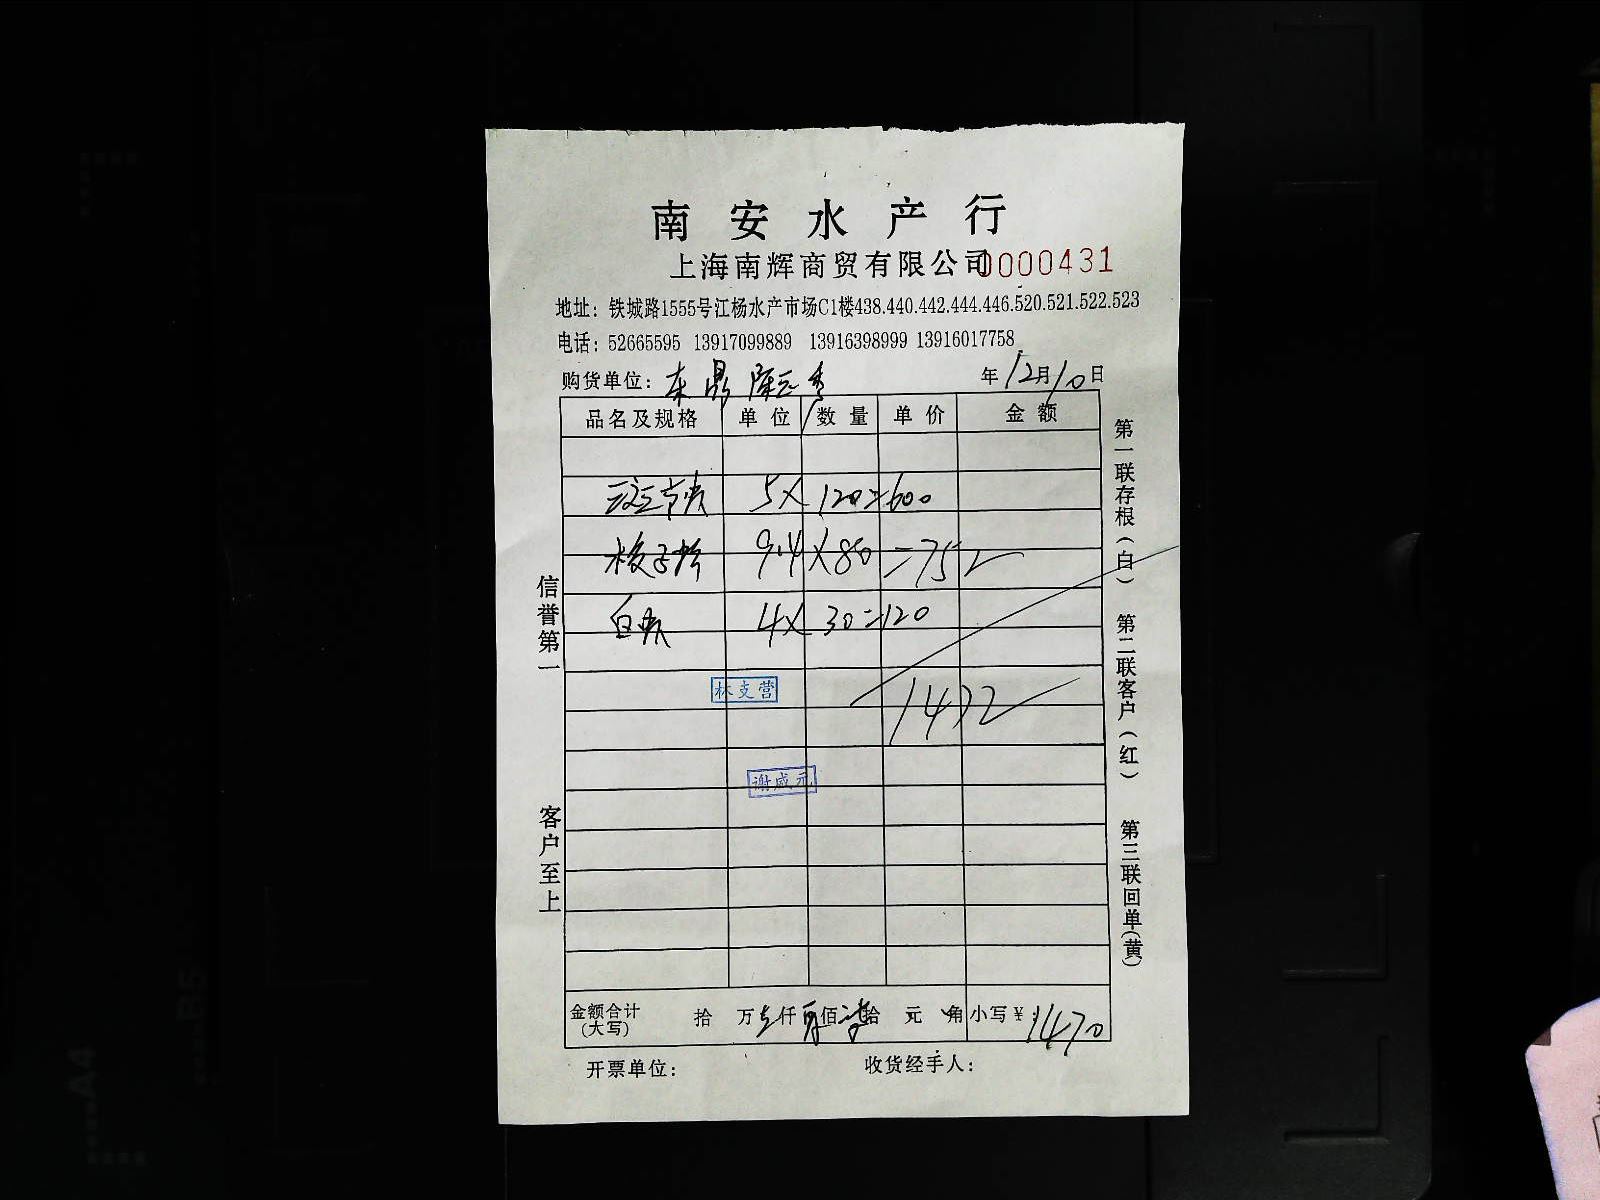 南安水产行
上海南辉商贸有限公司 0000431
地址：铁城路1555号江杨水产市场C1楼438.440.442.444.446.520.521.522.523
电话：52665595 13917099889 13916398999 13916017758
购货单位：东鼎 年12月10日
品名及规格 单位 数量 单价 金额
5× 120=600
梭子蟹 9.4×80=752
白 4×30=120
林支营
1472
谢咸元
金额合计（大写） 拾 万 仟 佰 拾 元 角 小写¥：1470
开票单位： 收货经手人：
信誉第一 客户至上
第一联存根（白） 第二联客户（红） 第三联回单（黄）
A4
B5